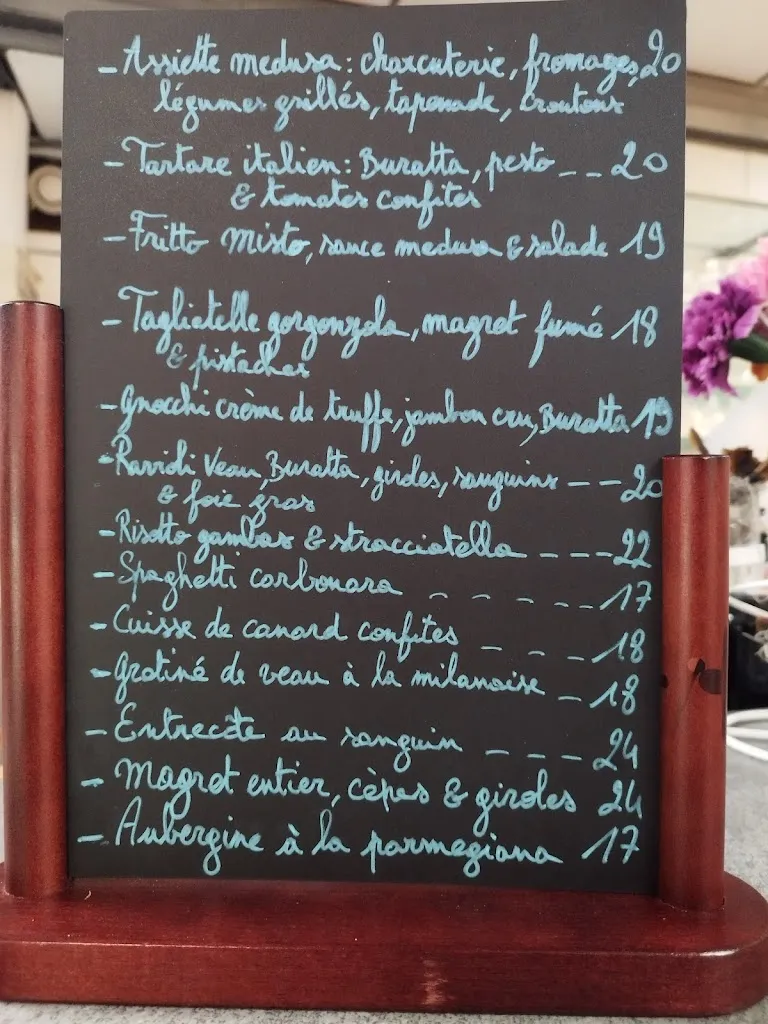 - Assiette medusa: charcuterie, fromages, 20
légumes grillés, taponade, croutons
- Tartare italien: Buratta, pesto _ _ 20
& tomates confites
- Fritto Misto, sauce medusa & salade 19
- Tagliatelle gorgonzola, magret fumé 18
& pistaches
- Gnocchi crème de truffe, jambon cru, Buratta 19
- Ravioli Veau, Buratta, giroles, sanguins _ _ 20
& foie gras
- Risotto gambas & stracciatella _ _ _ 22
- Spaghetti carbonara _ _ _ _ _ 17
- Cuisse de canard confites _ _ _ 18
- Gratiné de veau à la milanaise _ 18
- Entrecôte au sanguin _ _ _ 24
- Magret entier, cèpes & giroles 24
- Aubergine à la parmegiana 17